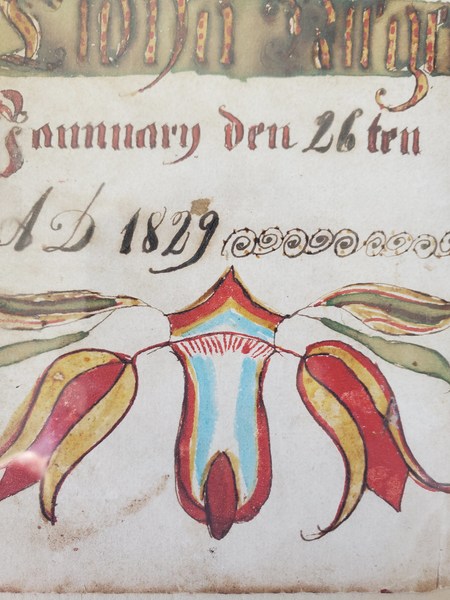 John
Jannuary den 26 ten
AD 1829